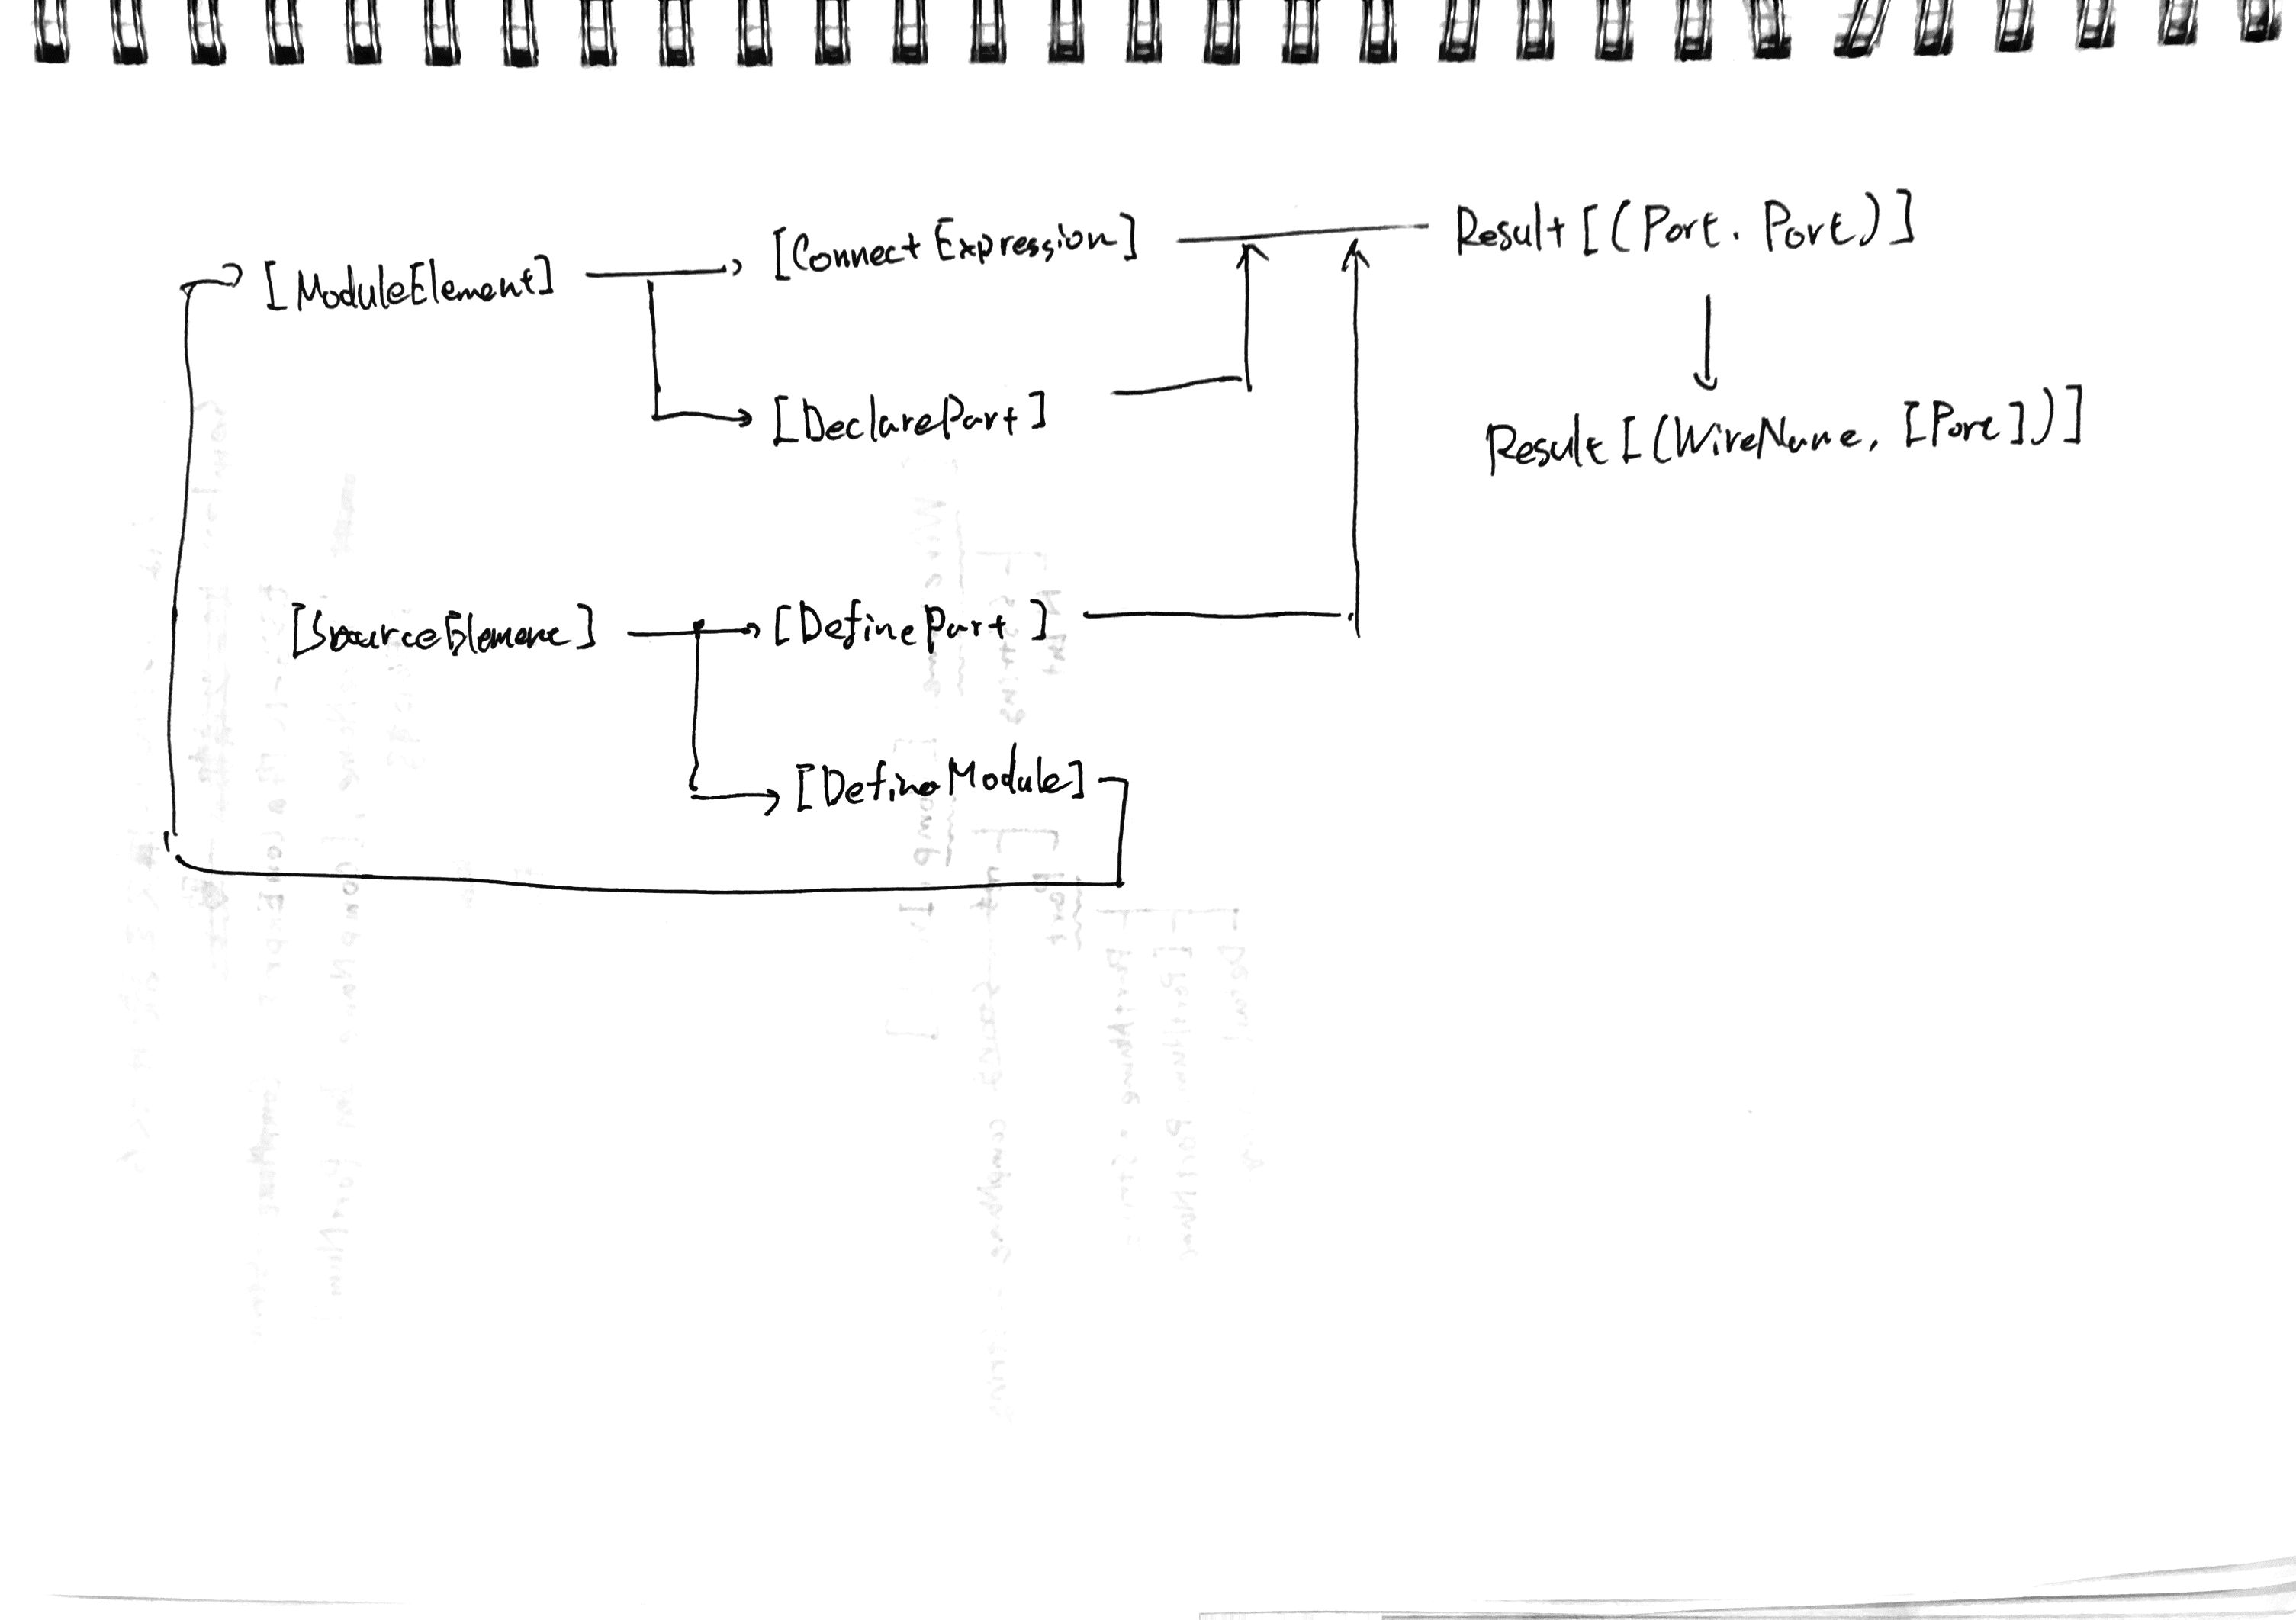 [ModuleElement]
[ConnectExpression]
Result[(Port. Port)]
[DeclarePart]
Result[(WireName, [Port])]
[SourceElement]
[DefinePart]
[DefineModule]